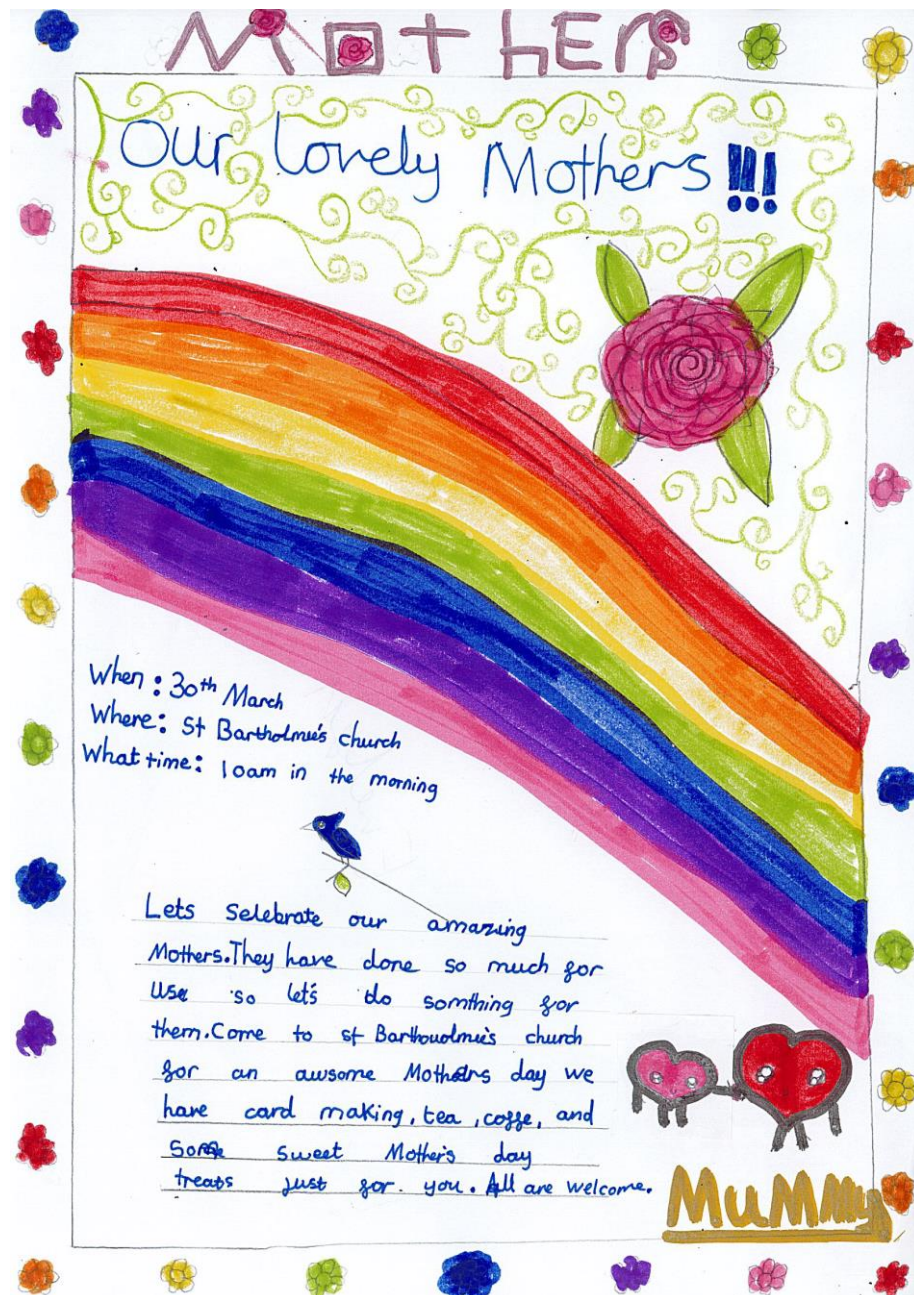 MOthErs
Our lovely Mothers!!!
When: 30th March
Where: St Bartholmie's church
What time: 10am in the morning
Lets Selebrate our amazing
Mothers.They have done so much for
use so let's do somthing for
them.Come to st Barthouolmie's church
for an awsome Mothers day we
have card making, tea, coffe, and
some sweet Mother's day
treats just for you. All are welcome.
MuMMy